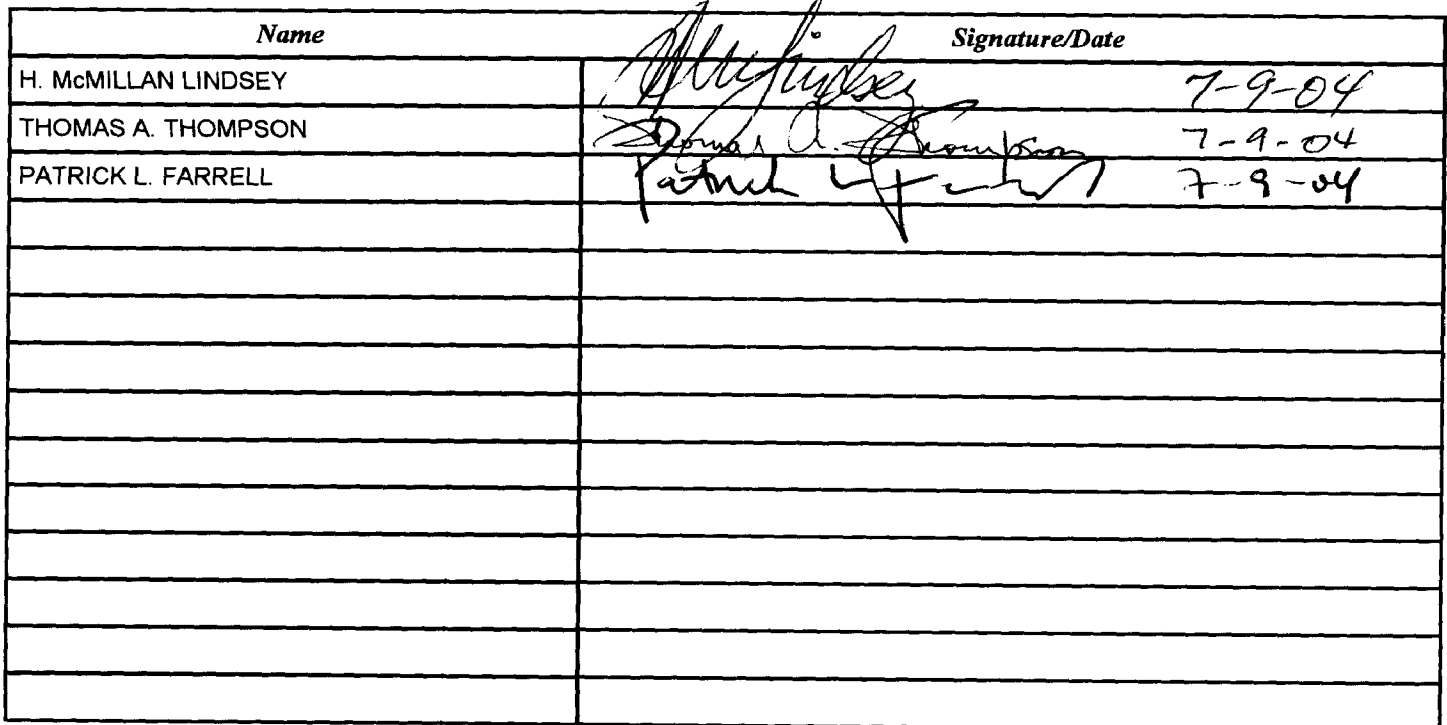 Name Signature/Date
H. McMILLAN LINDSEY HMcLindsey 7-9-04
THOMAS A. THOMPSON Thomas A. Thompson 7-9-04
PATRICK L. FARRELL Patrick L Farrell 7-9-04